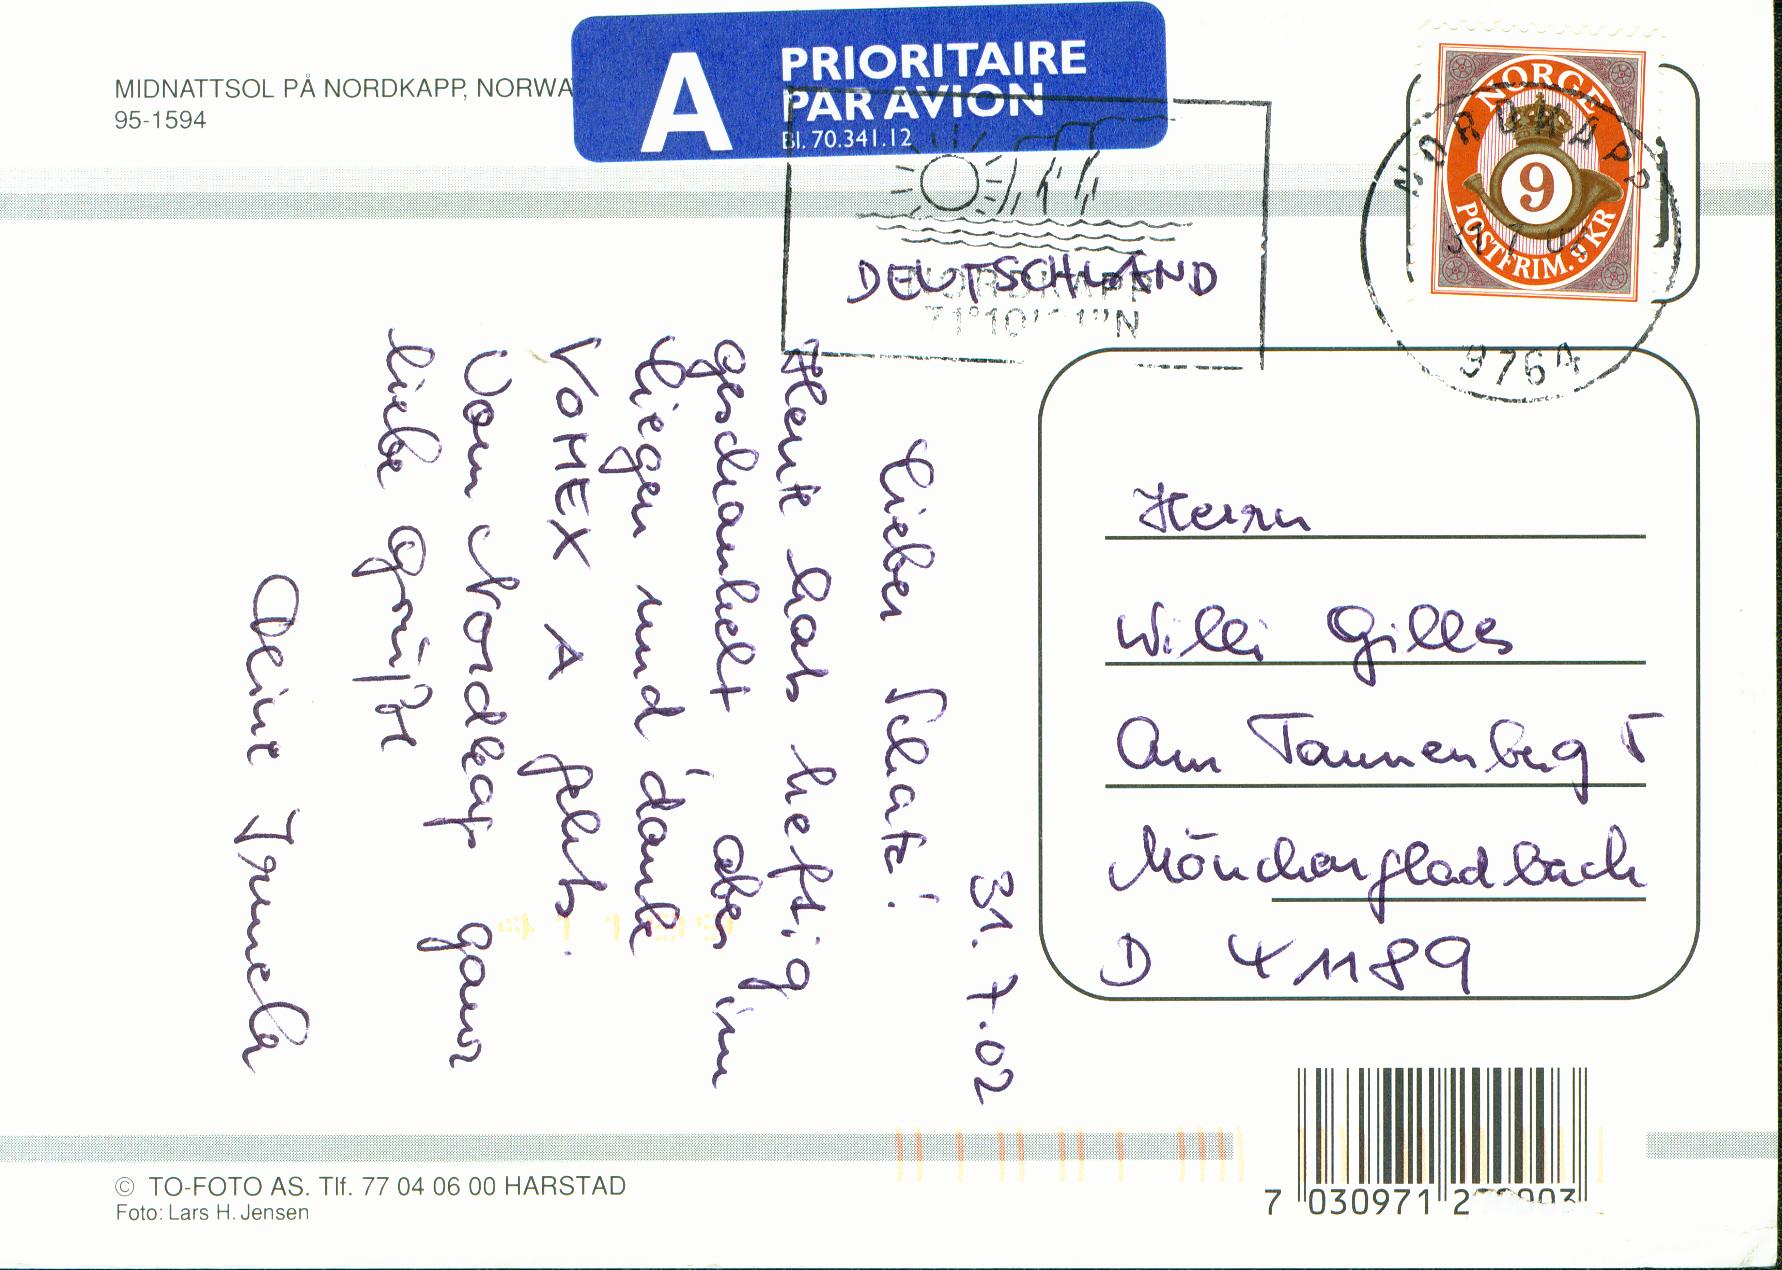 MIDNATTSOL PÅ NORDKAPP, NORWA
95-1594
A PRIORITAIRE
PAR AVION
Bl. 70.341.12
NORGE
9
POSTFRIM. 9 KR
NORDKAPP
9764
NORDKAPP
DEUTSCHLAND
31.7.02
Lieber Schatz!
Heute hats heftig
geschaukelt, aber im
Liegen und dank
VOMEX A gehts.
Vom Nordkap ganz
liebe Grüße
Deine Irmela
Herrn
Willi Gilles
Am Tannenberg 5
Mönchengladbach
D 41189
41189
© TO-FOTO AS. Tlf. 77 04 06 00 HARSTAD
Foto: Lars H. Jensen
7 030971 2